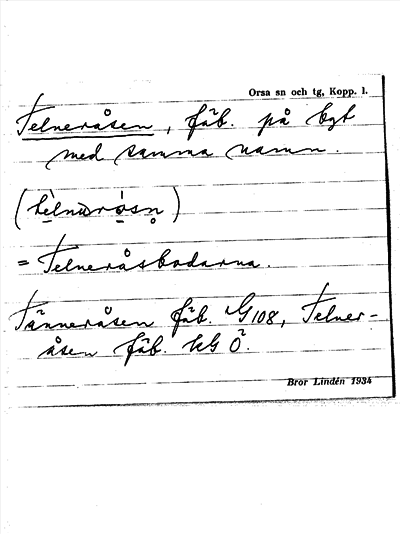 Orsa sn och tg, Kopp. l.
Telneråsen, fäb. på bgt
med samma namn.
= Telneråsbodarna.
Tänneråsen fäb. G108, Telner-
åsen fäb. kG Ö.
Bror Lindén 1934